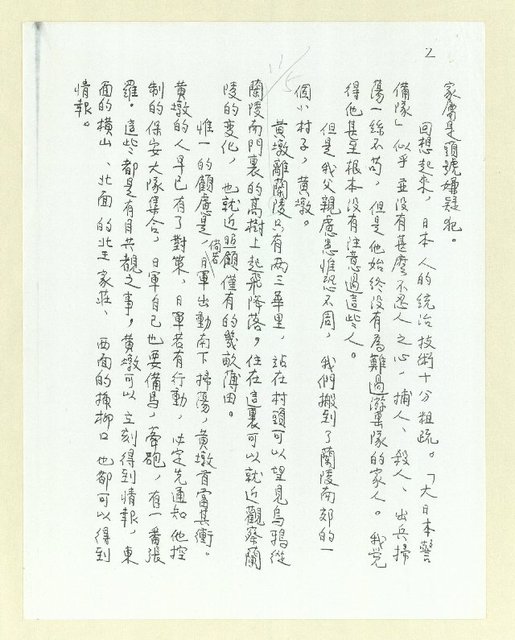 2
家屬是頭號嫌疑犯。
回想起來，日本人的統治技術十分粗疏。「大日本警
備隊」似乎並沒有甚麼不忍人之心，捕人、殺人、出兵掃
蕩一絲不苟，但是他始終沒有為難過游擊隊的家人。我覺
得他甚至根本沒有注意過這些人。
但是我父親慮患惟恐不周，我們搬到了蘭陵南郊的一
個小村子，黃墩。
黃墩離蘭陵只有兩三華里，站在村頭可以望見烏鴉從
蘭陵南門裏的高樹上起飛降落。住在這裏可以就近觀察蘭
陵的变化，也就近照顧僅有的幾畝薄田。
惟一的顧慮是，倘若日軍出動南下掃蕩，黃墩首當其衝。
黃墩的人早已有了對策，日軍若有行動，必定先通知他控
制的保安大隊集合，日軍自己也要備馬，牽砲，有一番張
羅。這些都是有目共覩之事，黃墩可以立刻得到情報，東
面的橫山、北面的北王家莊、西面的楊柳口也都可以得到
情報。